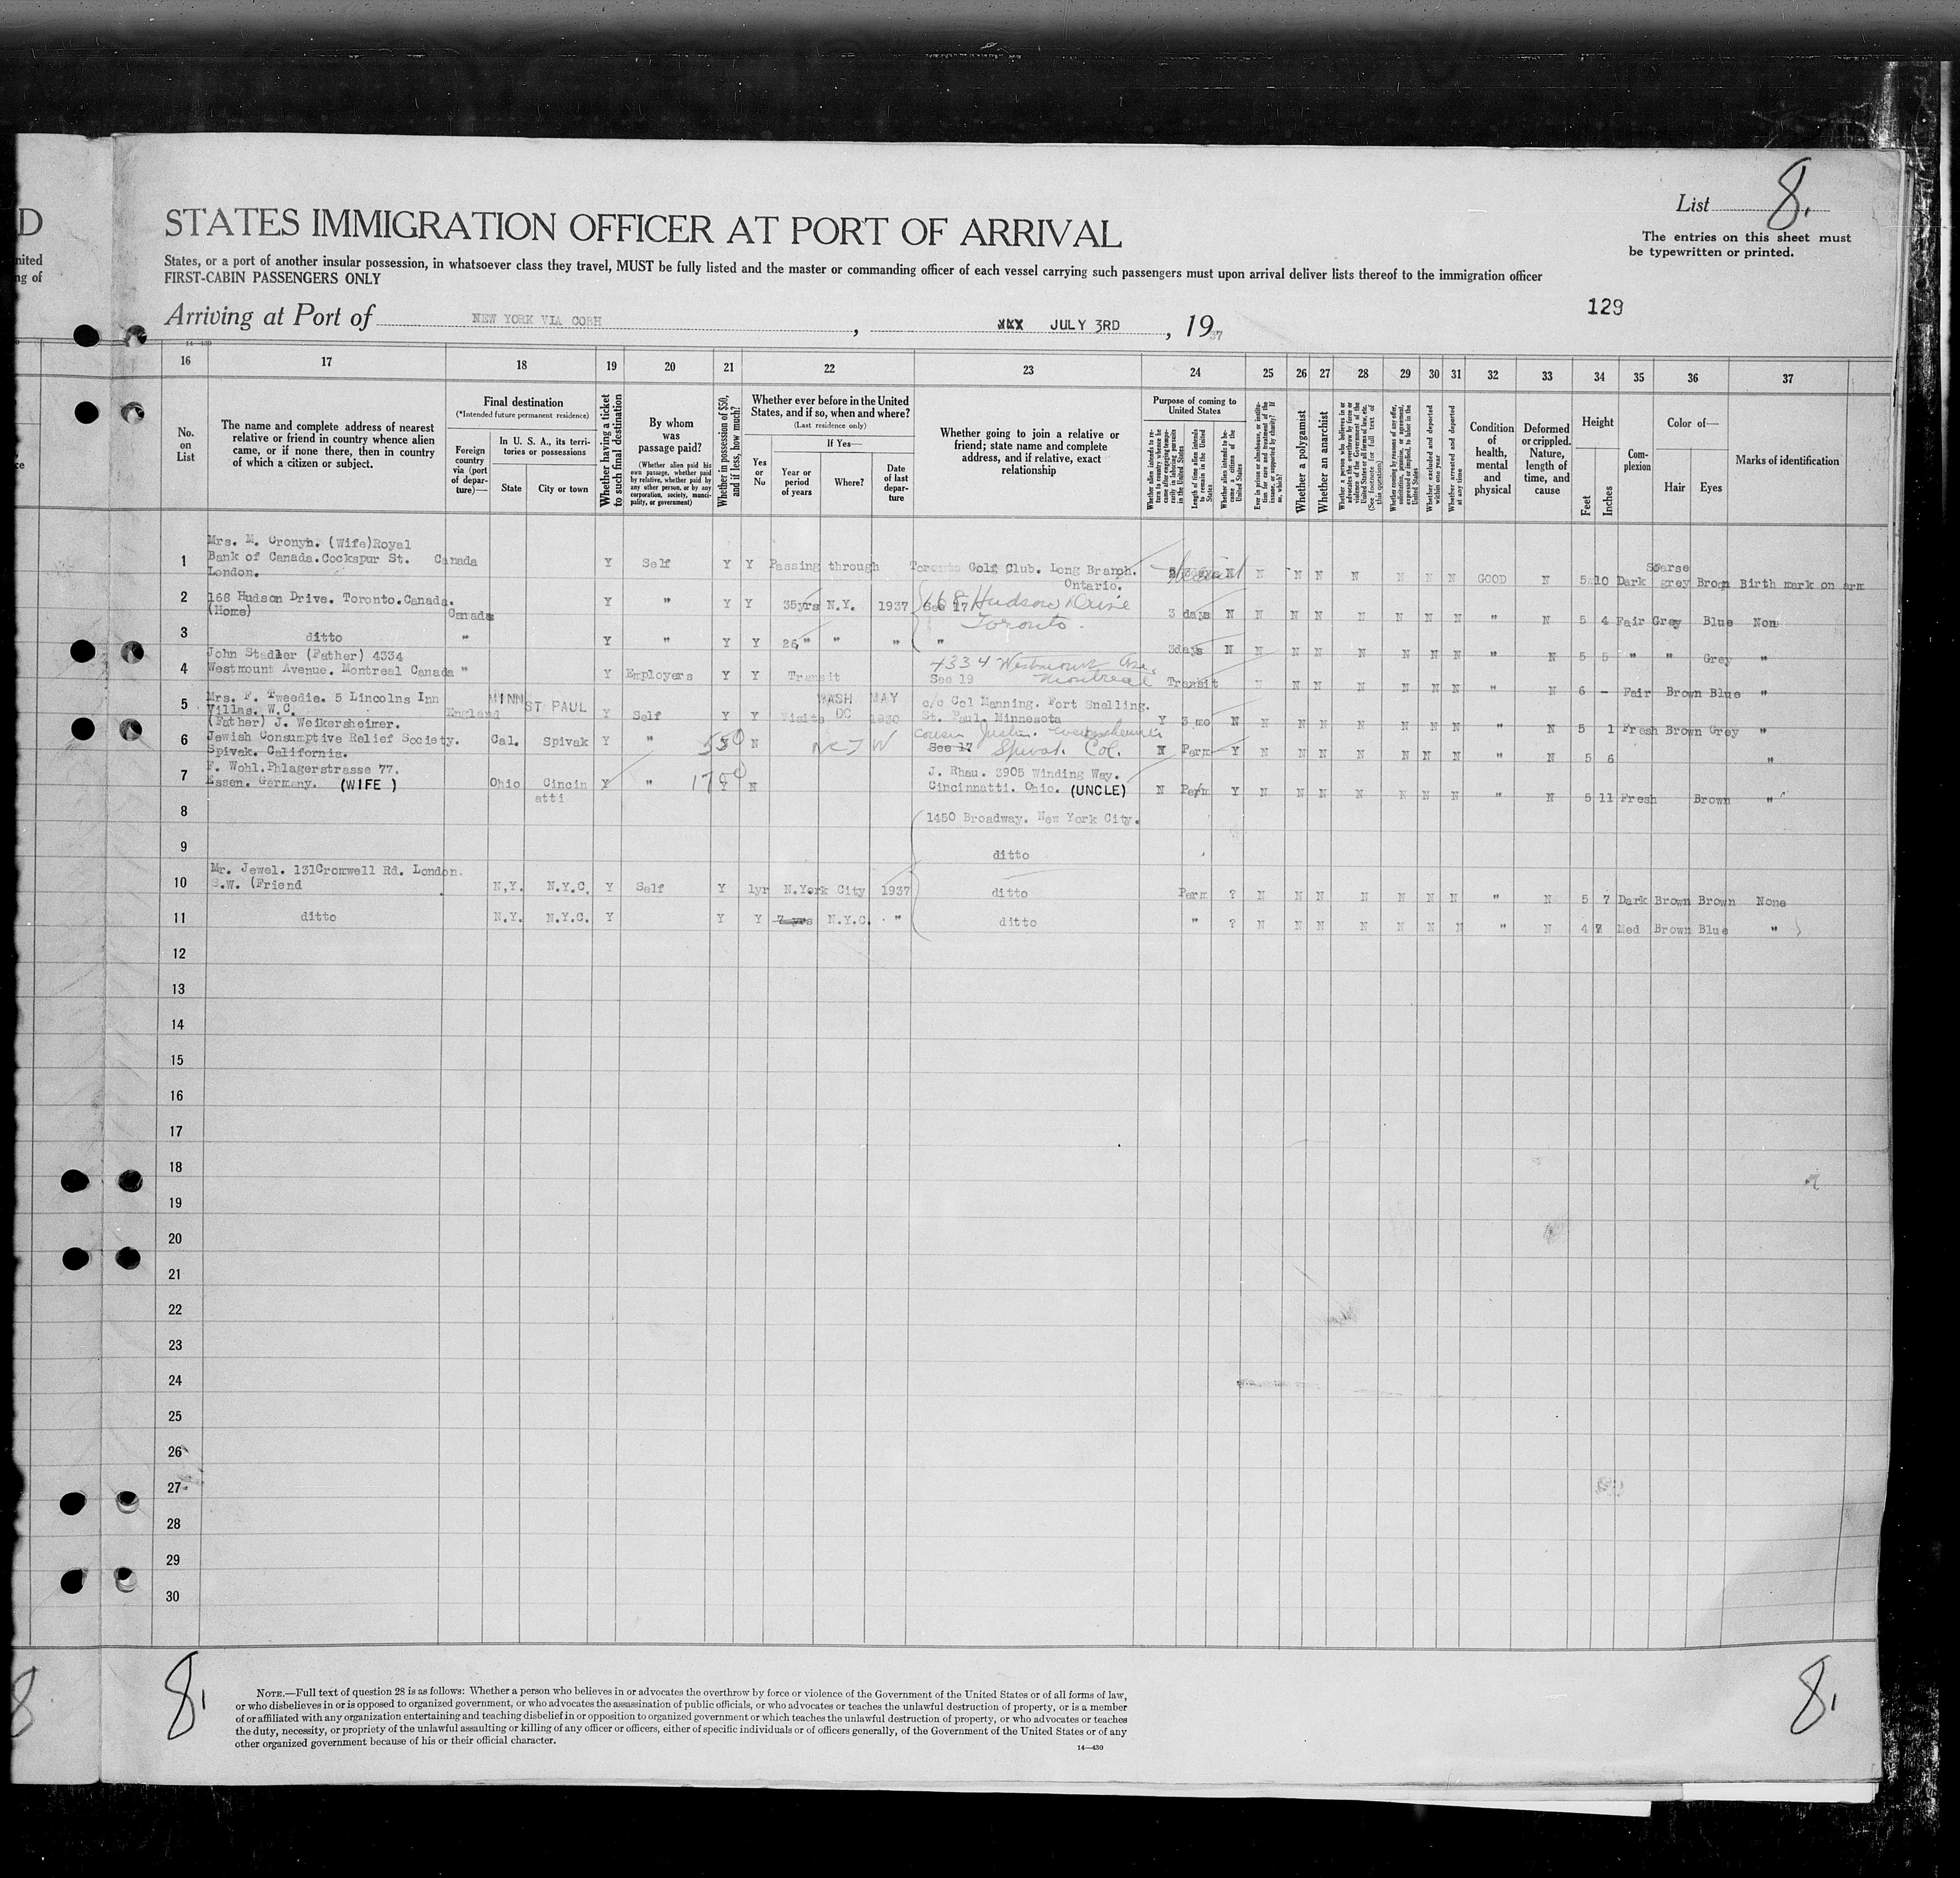 D
nited
ng of
ce
List 8.
STATES IMMIGRATION OFFICER AT PORT OF ARRIVAL
The entries on this sheet must
be typewritten or printed.
States, or a port of another insular possession, in whatsoever class they travel, MUST be fully listed and the master or commanding officer of each vessel carrying such passengers must upon arrival deliver lists thereof to the immigration officer
FIRST-CABIN PASSENGERS ONLY
129
Arriving at Port of NEW YORK VIA COBH, JULY 3RD, 1937
14-430
16 17 18 19 20 21 22 23 24 25 26 27 28 29 30 31 32 33 34 35 36 37
No. on List
The name and complete address of nearest
relative or friend in country whence alien
came, or if none there, then in country
of which a citizen or subject.
Final destination
(*Intended future permanent residence)
Foreign country via (port of departure)—
In U. S. A., its territories or possessions
State
City or town
Whether having a ticket to such final destination
By whom was passage paid?
(Whether alien paid his own passage, whether paid by relative, whether paid by any other person, or by any corporation, society, municipality, or government)
Whether in possession of $50, and if less, how much?
Whether ever before in the United
States, and if so, when and where?
(Last residence only)
Yes or No
If Yes—
Year or period of years
Where?
Date of last departure
Whether going to join a relative or
friend; state name and complete
address, and if relative, exact
relationship
Purpose of coming to United States
Whether alien intends to return to country whence he came after engaging temporarily in laboring pursuits in the United States
Length of time alien intends to remain in the United States
Whether alien intends to become a citizen of the United States
Ever in prison or almshouse, or institution for care and treatment of the insane, or supported by charity? If so, which?
Whether a polygamist
Whether an anarchist
Whether a person who believes in or advocates the overthrow by force or violence of the Government of the United States or of all forms of law, etc. (See footnote for full text of this question)
Whether coming by reasons of any offer, solicitation, promise, or agreement, expressed or implied, to labor in the United States
Whether excluded and deported within one year
Whether arrested and deported at any time
Condition of health, mental and physical
Deformed or crippled. Nature, length of time, and cause
Height
Feet
Inches
Complexion
Color of—
Hair
Eyes
Marks of identification
Mrs. M. Cronyn. (Wife)Royal
1 Bank of Canada.Cockspur St. Canada Y Self Y Y Passing through Toronto Golf Club. Long Branch. N N N N N N N N GOOD N 5 10 Dark Sparse grey Brown Birth mark on arm
London. Ontario.
2 168 Hudson Drive. Toronto.Canada. Canada Y " Y Y 35yrs N.Y. 1937 See 17 168 Hudson Drive 3 days N N N N N N N N " N 5 4 Fair Grey Blue None
(Home) Toronto.
3 ditto " Y " Y Y 26" " " " 3days N N N N N N N N " N 5 5 " " Grey "
John Stadler (Father) 4334
4 Westmount Avenue. Montreal Canada " Y Employers Y Y Transit See 19 4334 Westmount Ave. Montreal Transit N N N N N N N " N 6 - Fair Brown Blue "
5 Mrs. F. Tweedie. 5 Lincolns Inn England MINN ST PAUL Y Self Y Y Visits WASH DC MAY 1930 c/o Col Manning. Fort Snelling.
Villas. W.C. St. Paul. Minnesota Y 3 mo N N N N N N N N " N 5 1 Fresh Brown Grey "
(Father) J. Weikersheimer.
6 Jewish Consumptive Relief Society. Cal. Spivak Y " 550 N See 17 Cousin Spivak. Col. N Perm Y N N N N N N N " N 5 6 "
Spivak. California.
7 F. Wohl.Phlagerstrasse 77. Ohio Cincin Y " Y N J. Rhau. 3905 Winding Way.
Essen. Germany. (WIFE ) atti Cincinnatti. Ohio. (UNCLE) N Perm Y N N N N N N N " N 5 11 Fresh Brown "
8 1450 Broadway. New York City.
9 ditto
10 Mr. Jewel. 131Cromwell Rd. London. N.Y. N.Y.C. Y Self Y 1yr N.York City 1937 ditto Perm ? N N N N N N N " N 5 7 Dark Brown Brown None
S.W. (Friend
11 ditto N.Y. N.Y.C. Y Y Y 7 yrs N.Y.C. " ditto " ? N N N N N N N " N 4 Med Brown Blue "
12
13
14
15
16
17
18
19
20
21
22
23
24
25
26
27
28
29
30
8 8. 8.
NOTE.—Full text of question 28 is as follows: Whether a person who believes in or advocates the overthrow by force or violence of the Government of the United States or of all forms of law,
or who disbelieves in or is opposed to organized government, or who advocates the assassination of public officials, or who advocates or teaches the unlawful destruction of property, or is a member
of or affiliated with any organization entertaining and teaching disbelief in or opposition to organized government or which teaches the unlawful destruction of property, or who advocates or teaches
the duty, necessity, or propriety of the unlawful assaulting or killing of any officer or officers, either of specific individuals or of officers generally, of the Government of the United States or of any
other organized government because of his or their official character.
14—430